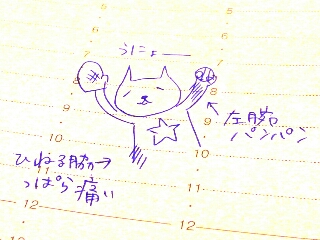 うにょ──
5
6
7
7
8
8
9
9
左腕
パンパン
10
10
ひねる脇か→
っぱら痛い
11
11
12
12